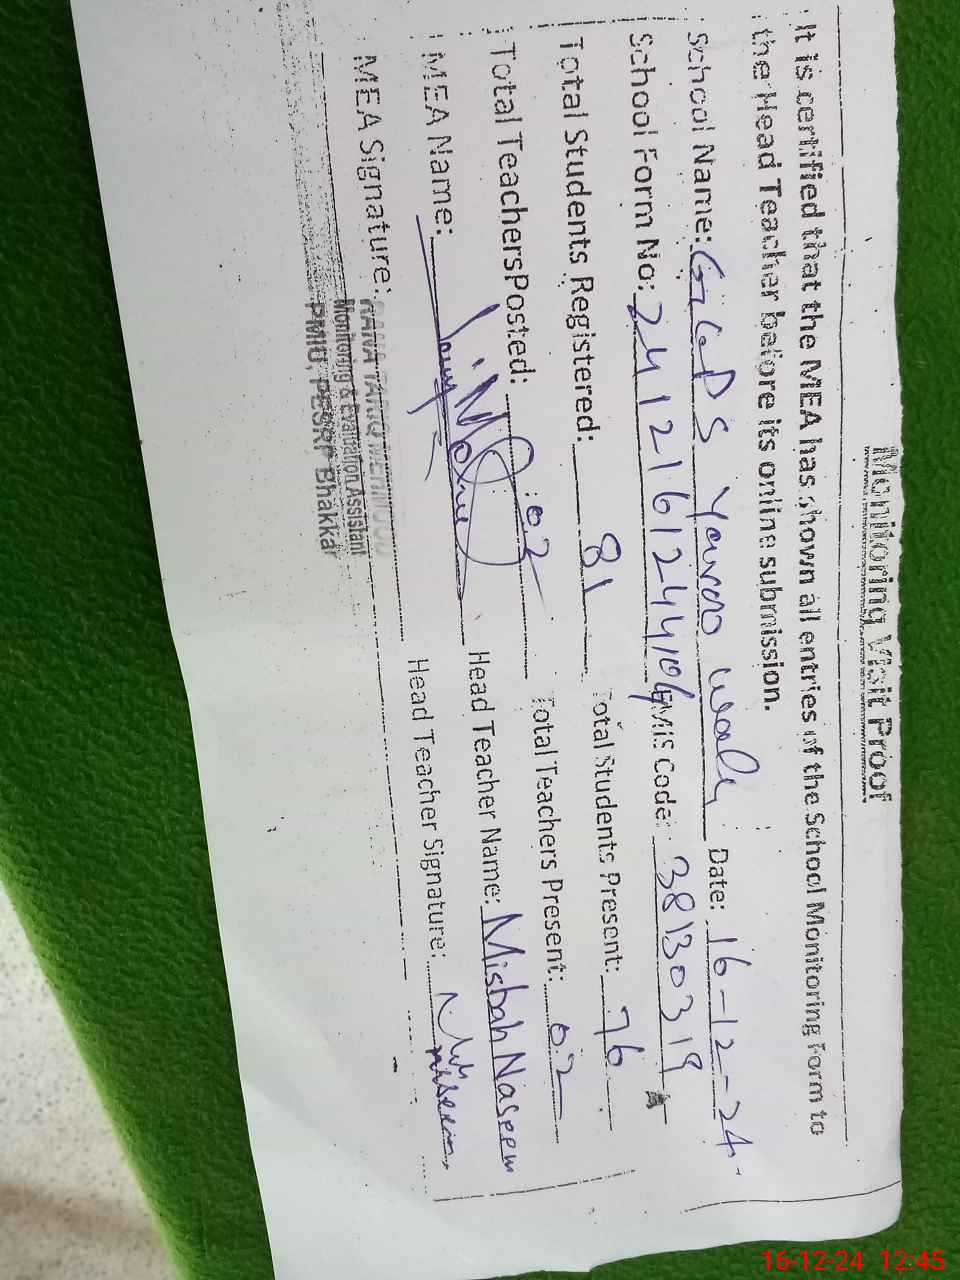 Monitoring Visit Proof
It is certified that the MEA has shown all entries of the School Monitoring Form to
the Head Teacher before its online submission.
School Name: GGPS Date: 16-12-24
School Form No: EMIS Code: 38130319
Total Students Registered: 81 Total Students Present: 76
Total TeachersPosted: 02 Total Teachers Present: 02
MEA Name: Head Teacher Name: Misbah Naseem
MEA Signature: Head Teacher Signature:
RANA TARIQ MEHMOOD
Monitoring & Evaluation Assistant
PMIU, PESRP Bhakkar
16-12-24 12:45